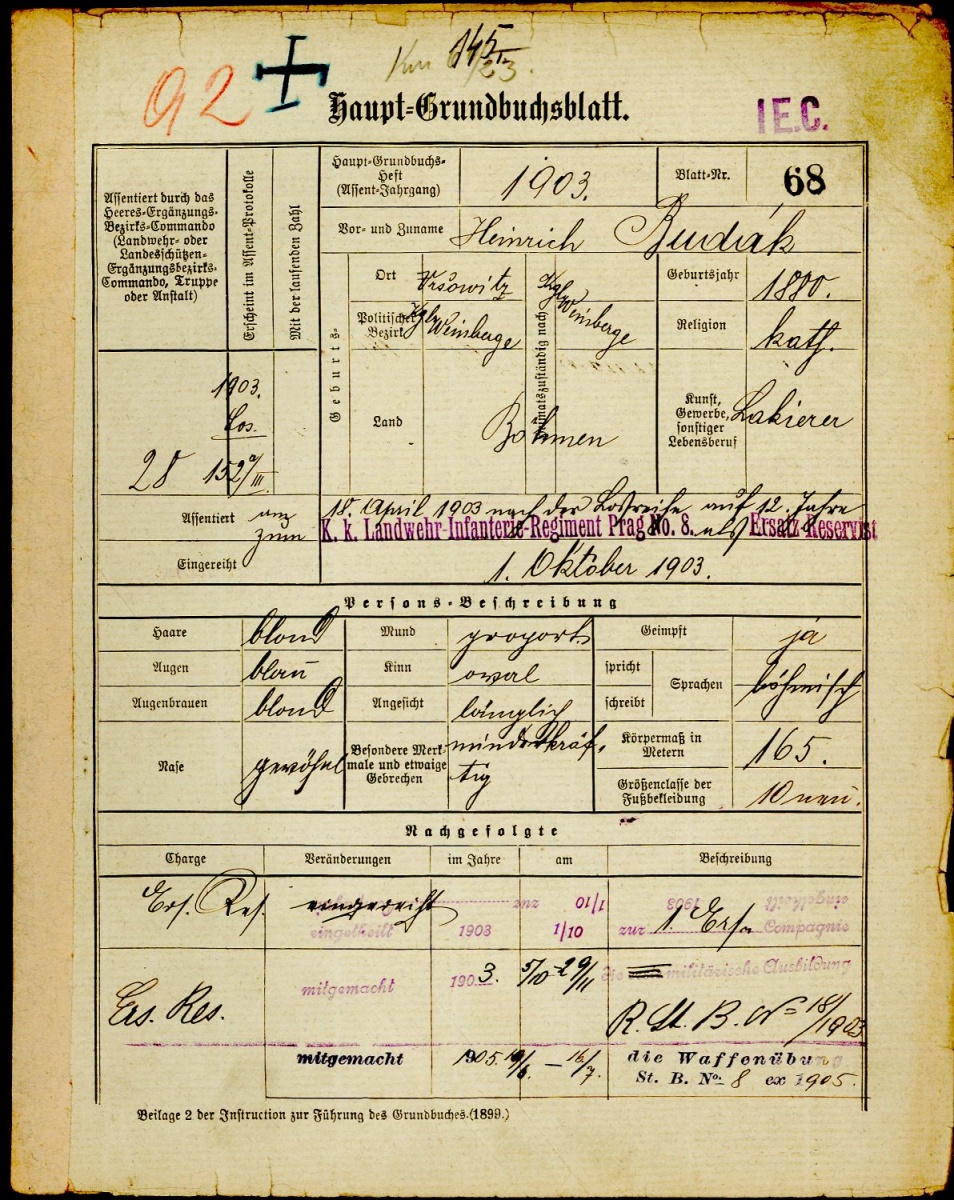 92
145/23.
Haupt-Grundbuchsblatt.
I E.C.
Assentiert durch das
Heeres-Ergänzungs-
Bezirks-Commando
(Landwehr- oder
Landesschützen-
Ergänzungsbezirks-
Commando, Truppe
oder Anstalt)
Erscheint im Assent-Protokolle
Mit der laufenden Zahl
1903.
Los.
28 152
III.
Haupt-Grundbuchs-
Heft
(Assent-Jahrgang)
1903.
Blatt-Nr.
68
Vor- und Zuname
Heinrich Budák
Geburts-
Ort
Vršowitz
Politischer
Bezirk
Kgl. Weinberge
Land
Böhmen
Heimatszuständig nach
Kgl. Weinberge
Geburtsjahr
1880.
Religion
kath.
Kunst,
Gewerbe,
sonstiger
Lebensberuf
Lakierer
Assentiert am 18. April 1903 nach der Losreihe auf 12 Jahre
zum K. k. Landwehr-Infanterie-Regiment Prag No. 8. als Ersatz-Reservist
Eingereiht 1. Oktober 1903.
Persons-Beschreibung
Haare blond
Augen blau
Augenbrauen blond
Nase gewöhnl
Mund proport.
Kinn oval
Angesicht länglich
Besondere Merk-
male und etwaige
Gebrechen
minderkräf-
tig
Geimpft ja
spricht
schreibt
Sprachen böhmisch
Körpermaß in
Metern
165.
Größenclasse der
Fußbekleidung
10 neu.
Nachgefolgte
Charge Veränderungen im Jahre am Beschreibung
Ers. Res. eingereiht 1903 zur 1/10 1903 eingetheilt
eingetheilt 1903 1/10 zur 1. Ers. Compagnie
Ers. Res. mitgemacht 1903. 5/10-29/11 die militärische Ausbildung
R. St. B. No 18/1903
mitgemacht 1905. 19/6. – 16/7. die Waffenübung
St. B. No. 8 ex 1905.
Beilage 2 der Instruction zur Führung des Grundbuches. (1899.)